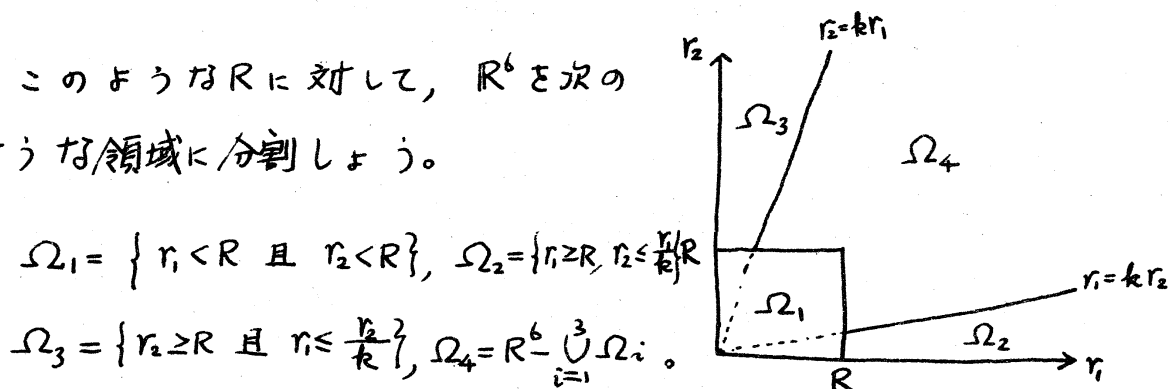 このようなRに対して, R⁶を次の
うな領域に分割しよう。
Ω₁={ r₁<R 且 r₂<R}, Ω₂={r₁≥R, r₂≤r₁/k}
Ω₃={r₂≥R 且 r₁≤r₂/k}, Ω₄=R⁶-∪³ᵢ₌₁Ωi 。
r₂=kr₁
r₂
Ω₃
Ω₄
R
r₁=kr₂
Ω₁
Ω₂
R
r₁